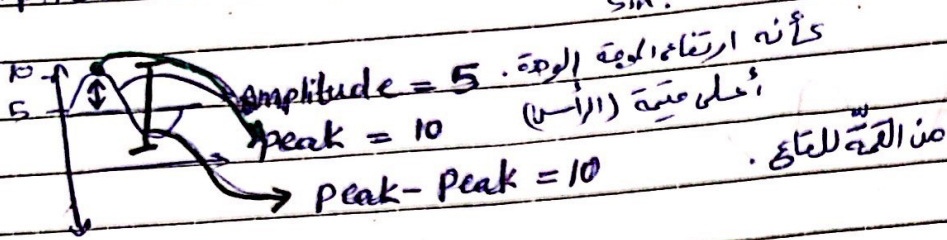 sin.
10
5
Amplitude = 5 . كأنه ارتفاع الموجة الوحدة
peak = 10 أعلى قيمة (الرأس)
peak - peak = 10 من القمة للقاع .